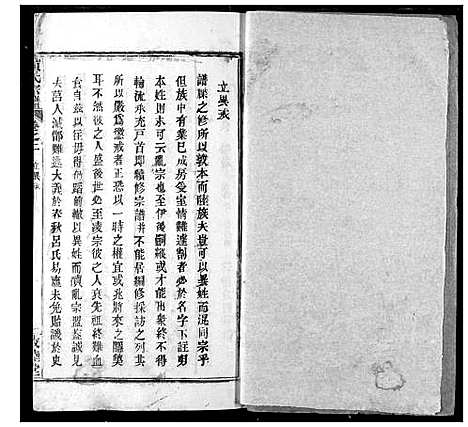 立異戒
譜牒之修所以敦本而睦族夫豈可以異姓而混同宗乎
但族中有業已成房愛室情難遽割者必於名字下註明
本姓則亦可云亂宗也至伊後嗣雖依才能出眾終不得
輪流承充戶首即續修宗譜並不能居編修採訪之列其
所以嚴為懲戒者正恐以一時之權宜或兆將來之釁端
耳不然彼之人盛後世必至凌宗彼之人衰先祖終難血
食自茲以往毋得仍蹈前轍以異姓而瀆亂宗盟蓋誠見
夫莒人滅鄫難逃大義於春秋呂氏易嬴未免貽譏於史
氏宗譜 卷之二 立異戒